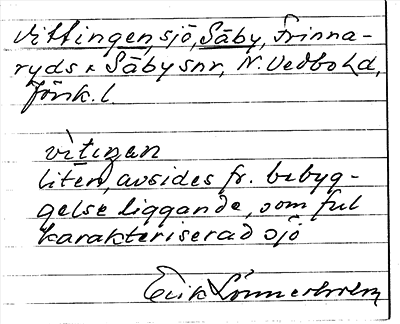 Vittingen, sjö, Säby, Frinna-
ryds & Säby snr, N. Vedbo hd,
Jönk. l.
vìtiŋen
liten, avsides fr. bebyg-
gelse liggande, som ful
karakteriserad sjö
Erik Lönnerholm